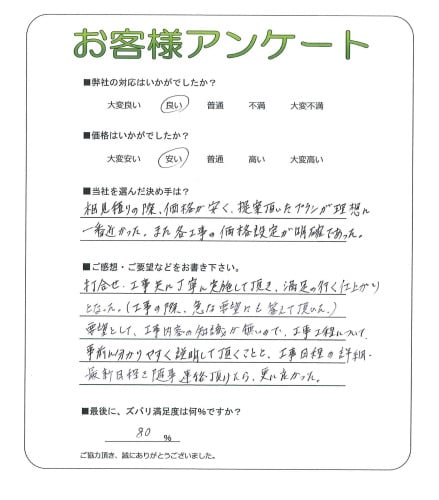 お客様アンケート
■弊社の対応はいかがでしたか?
大変良い 良い 普通 不満 大変不満
■価格はいかがでしたか?
大変安い 安い 普通 高い 大変高い
■当社を選んだ決め手は?
相見積りの際、価格が安く、提案頂いたプランが理想に
一番近かった。また各工事の価格設定が明確であった。
■ご感想・ご要望などをお書き下さい。
打合せ・工事共に丁寧に実施して頂き、満足の行く仕上がり
となった。(工事の際、急な要望にも答えて頂いた。)
要望として、工事内容の知識が無いので、工事工程について
事前に分かりやすく説明して頂くことと、工事日程の詳細・
最新日程を随時連絡頂けたら、更に良かった。
■最後に、ズバリ満足度は何%ですか?
80 %
ご協力頂き、誠にありがとうございました。